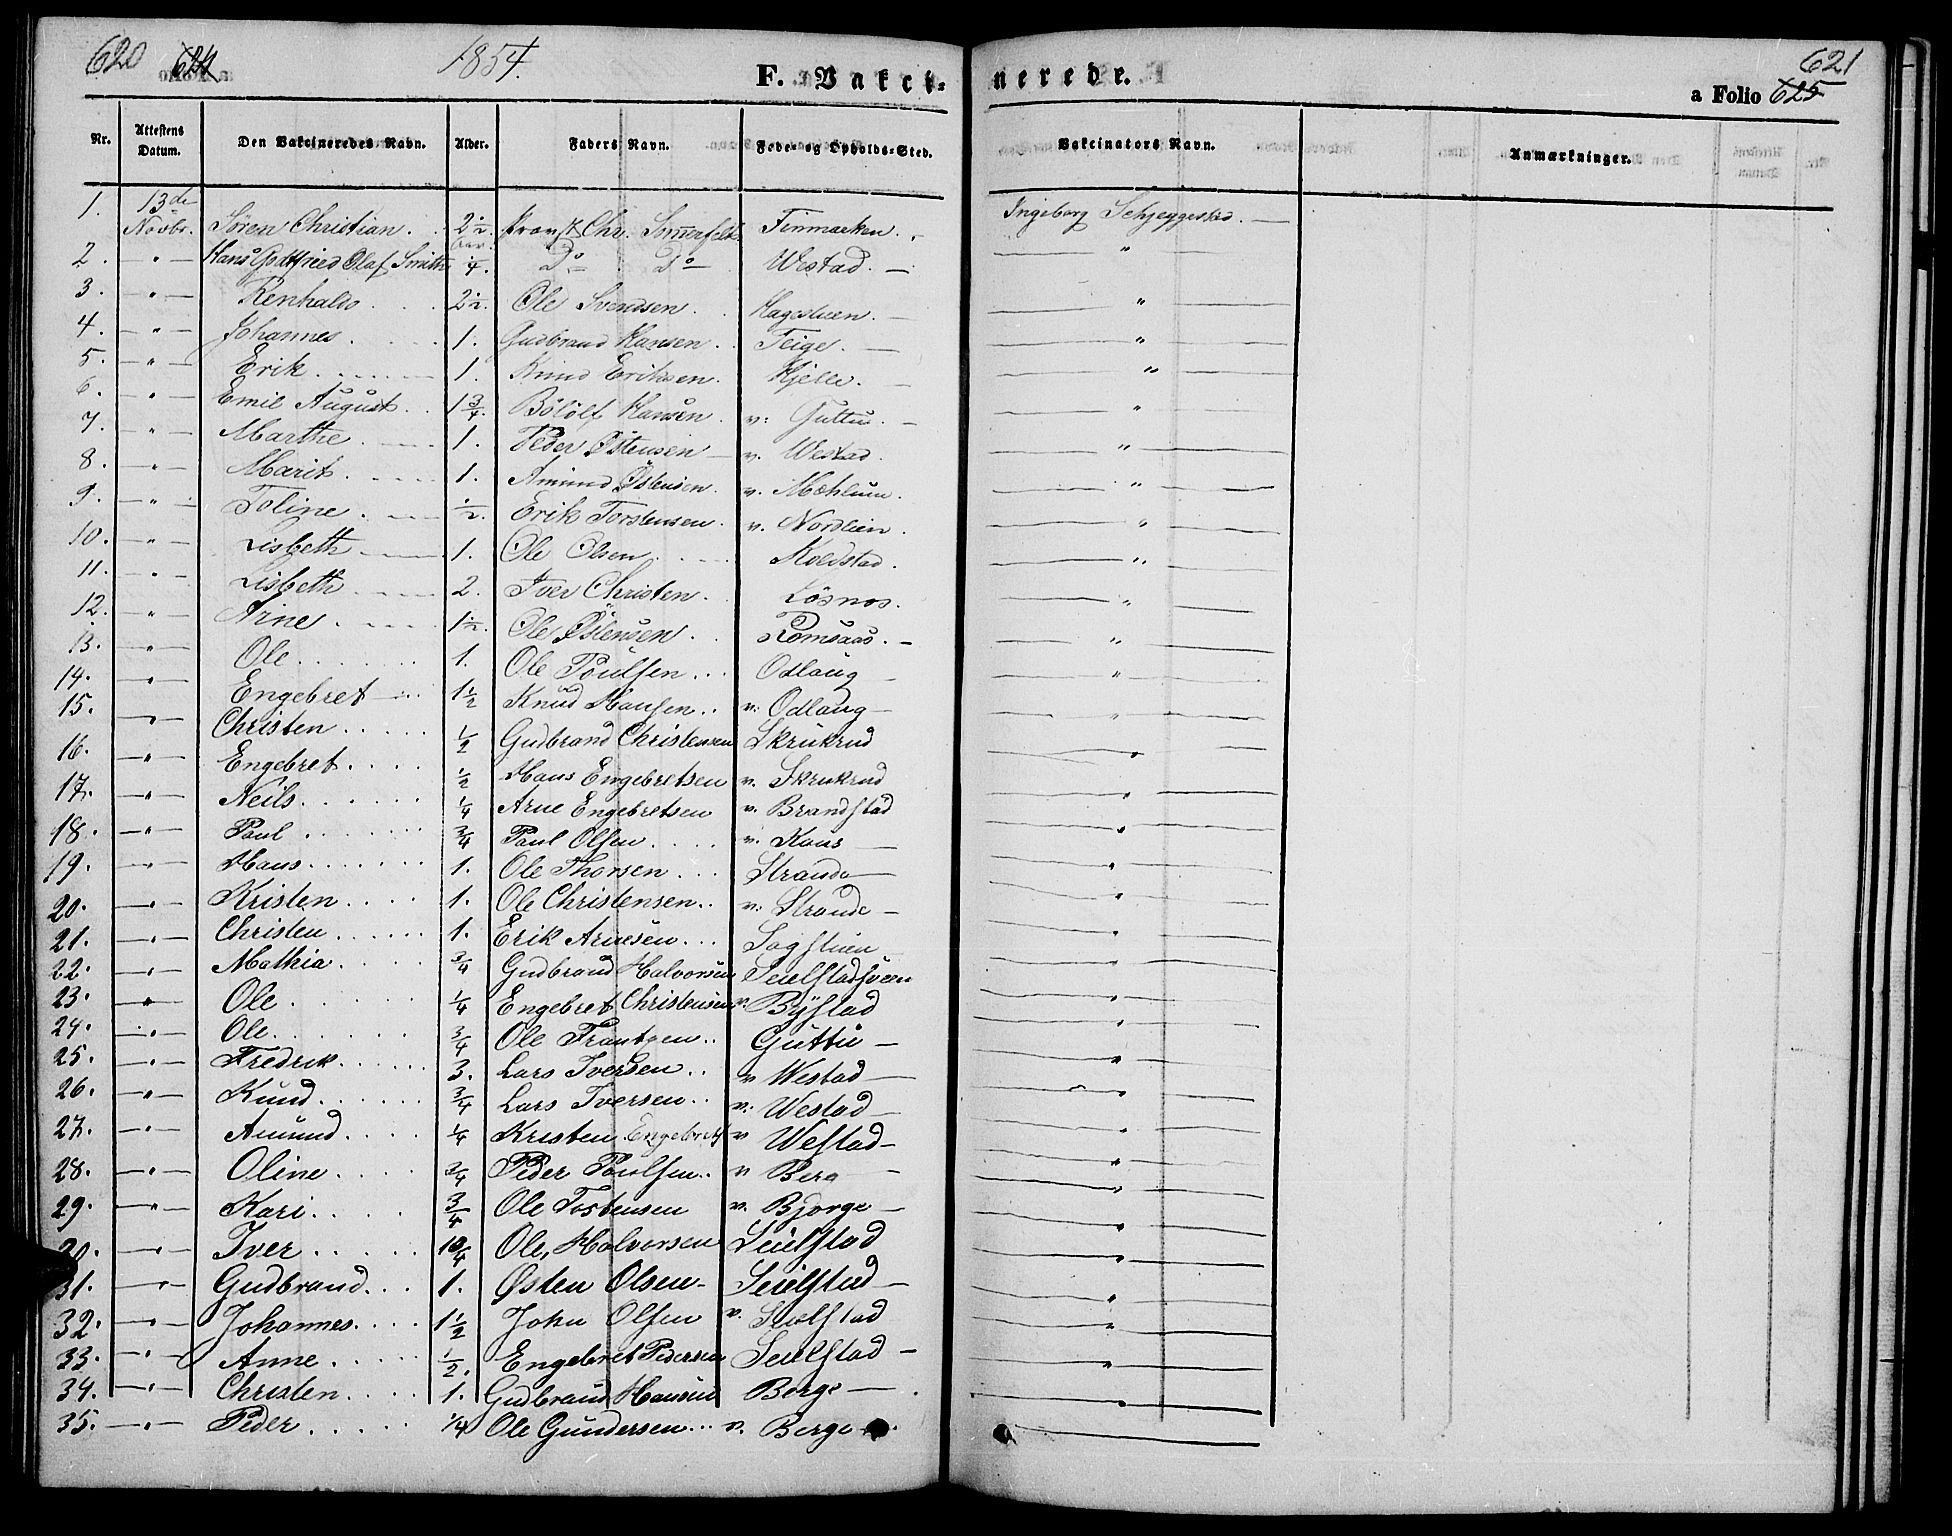 620 624 1854. F. Vakci-
nerede. 621
a Folio 625
Nr. Attestens Datum. Den Vakcineredes Navn. Alder. Faders Navn. Føde- og Opholds-Sted. Vakcinators Navn. Anmærkninger.
1. 13de Novbr. Søren Christian. 2 1/2 aar. Provst Chr. Somerfelt Finmarken. Ingeborg Schjeggestad. —
2. — " — Hans Godtfried Olaf Smith 1/4. Do — Do — Westad. — "
3. — " — Renhaldo. 2 1/2. Ole Svendsen. Hagestuen. — "
4. — " — Johannes. 1. Gudbrand Hansen. Teige. — "
5. — " — Erik. 1. Knud Eriksen. Kjelle. — "
6. — " — Emil August. 1 3/4. Bölölf Hansen. v: Guttu. — "
7. " — Marthe. 1. Peder Østensen — v. Westad. "
8. " — Marit. 1. Amund Østensen. v. Mæhlum. "
9. " — Toline. 1/2. Erik Torstensen. v. Nordlien. "
10. — " — Lisbeth 1. Ole Olsen. Koldstad. "
11. — " — Lisbeth 2. Iver Christen. Løsnos. "
12. — " — Arine. 1 1/2. Ole Østensen. Romsaas. — "
13. — " — Ole. 1. Ole Poulsen Odlaug — "
14. — " — Engebret 1 1/2 Knud Hansen v: Odlaug — "
15. — " — Christen 1/2 Gudbrand Christensen Skrukrud "
16. — " — Engebret 1/2 Hans Engebretsen v. Skrukrud "
17. — " — Neils 1/4 Arne Engebretsen v. Brandstad "
18. — " — Paul 3/4 Paul Olsen v. Kaus — "
19. — " — Hans 1. Ole Thorsen Strande — "
20. — " — Kristen 1. Ole Christensen v: Strande — "
21. — " — Christen 1. Erik Arnesen Sagstuen "
22. — " — Mathia 3/4 Gudbrand Halvorsen Seielstadsveen "
23. — " — Ole 1/4 Engebret Christensen v. Býstad "
24. — " — Ole 3/4 Ole Frantzen Guttu — "
25. — " — Fredrik 3. Lars Iversen v Westad — "
26. — " — Knud 3/4 Lars Iversen v. Westad — "
27. — " — Amund 1/4 Kristen Engebrets v Westad — "
28. — " — Oline 3/4 Peder Paulsen v Berg — "
29. — " — Kari 3/4 Ole Tostensen v. Bjorge — "
30. — " — Iver 10/4 Ole Halvorsen Seielstad "
31. — " — Gudbrand 1. Østen Olsen Seielstad — "
32. — " — Johannes 1 1/2 John Olsen v. Seielstad "
33. — " — Anne 1/2. Engebret Pedersen Seielstad — "
34. — " — Christen 1. Gudbrand Hansen Berge — "
35. — " — Peder 1/4 Ole Gundersen v. Berge —